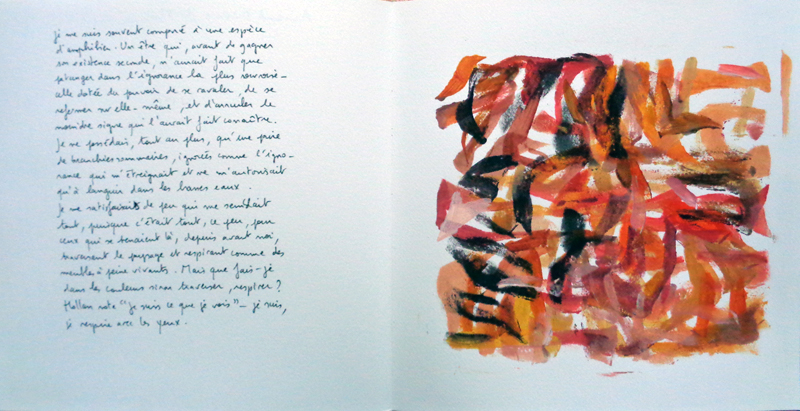 je me suis souvent comparé à une espèce
d'amphibien. Un être qui, avant de gagner
son existence seconde, n'aurait fait que
patauger dans l'ignorance la plus sournoise –
celle dotée du pouvoir de se ravaler, de se
refermer sur elle-même, et d'annuler le
moindre signe qui l'aurait fait connaître.
Je ne possédais, tout au plus, qu'une paire
de branchies sommaires, ignorées comme l'igno-
rance qui m'étreignait et ne m'autorisait
qu'à languir dans les basses eaux.
Je me satisfaisais de peu qui me semblait
tout, puisque c'était tout, ce peu, pour
ceux qui se tenaient là, depuis avant moi,
traversant le paysage et respirant comme des
meubles à peine vivants. Mais que fais-je
dans les couleurs sinon traverser, respirer ?
nota "Je suis ce que je vois" – je suis,
je respire avec les yeux.